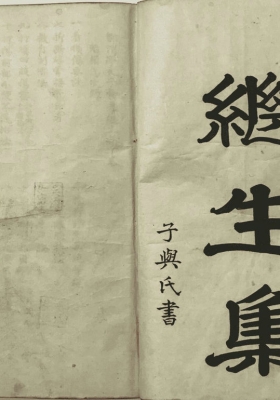 繼生集
子與氏書